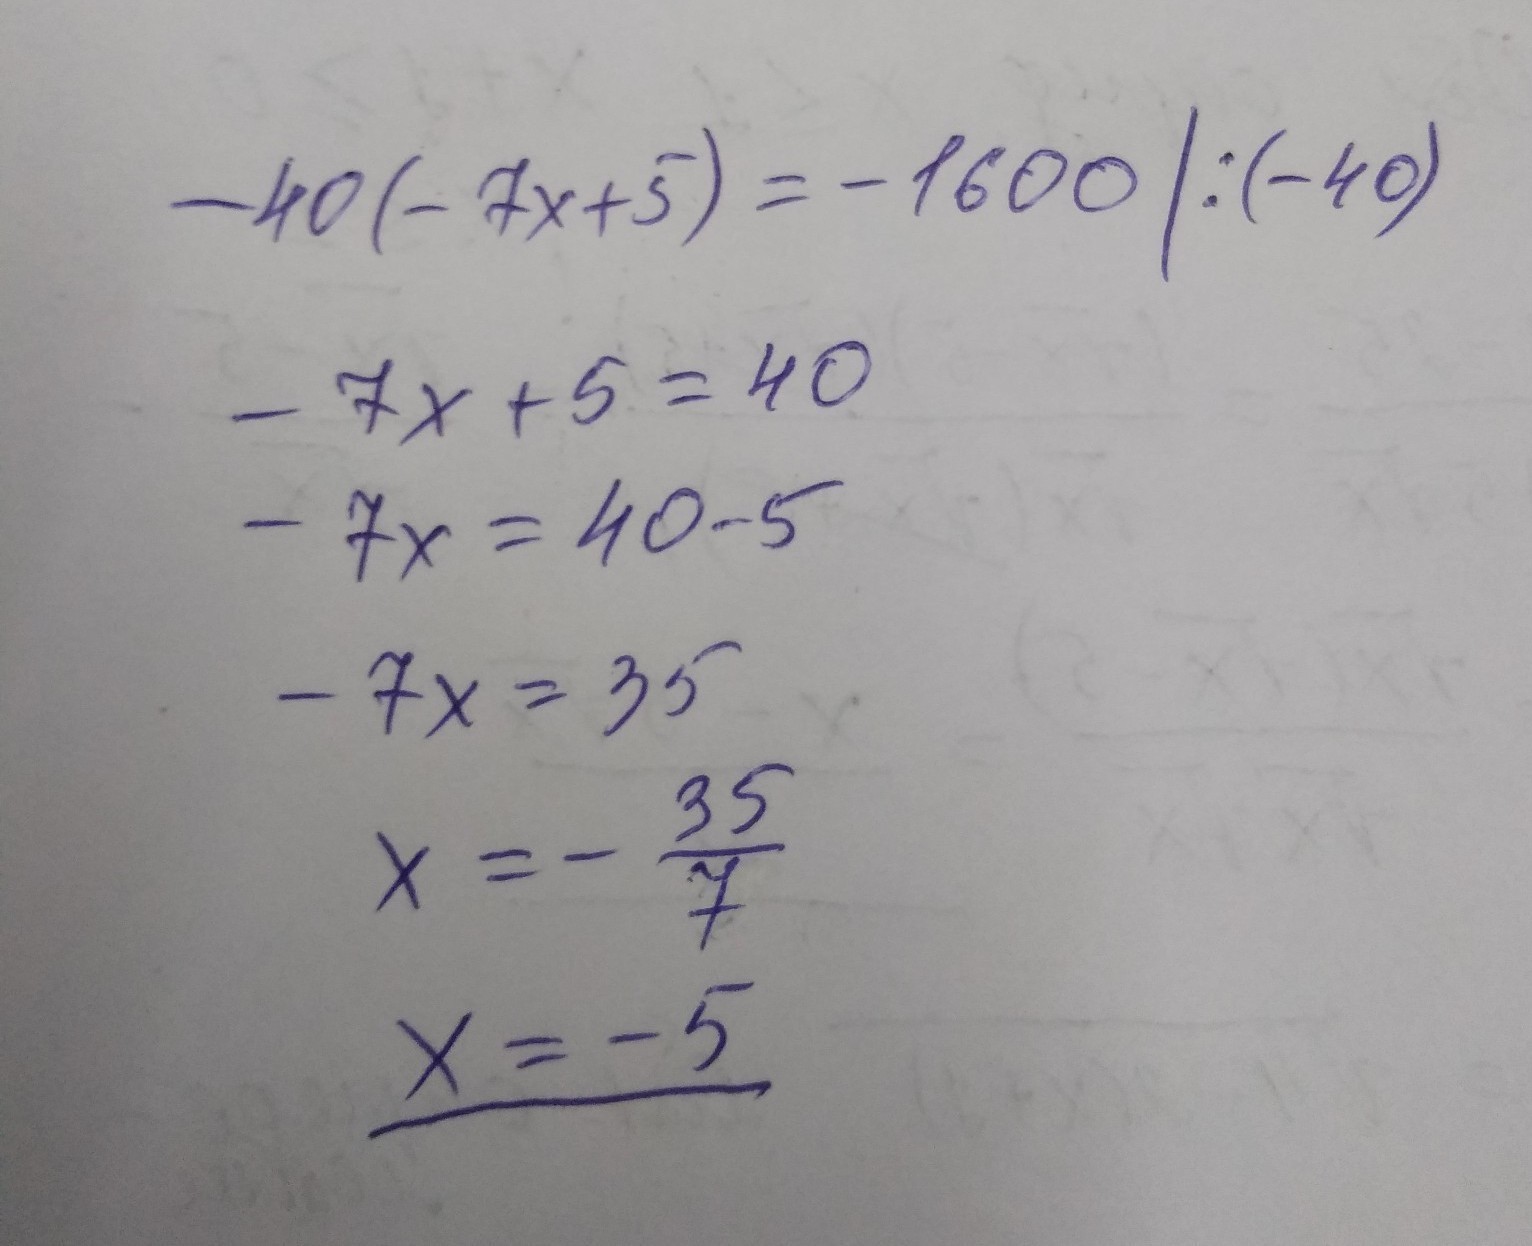 -40(-7x+5)=-1600 | :(-40)
-7x+5=40
-7x=40-5
-7x=35
x=-35/7
x=-5